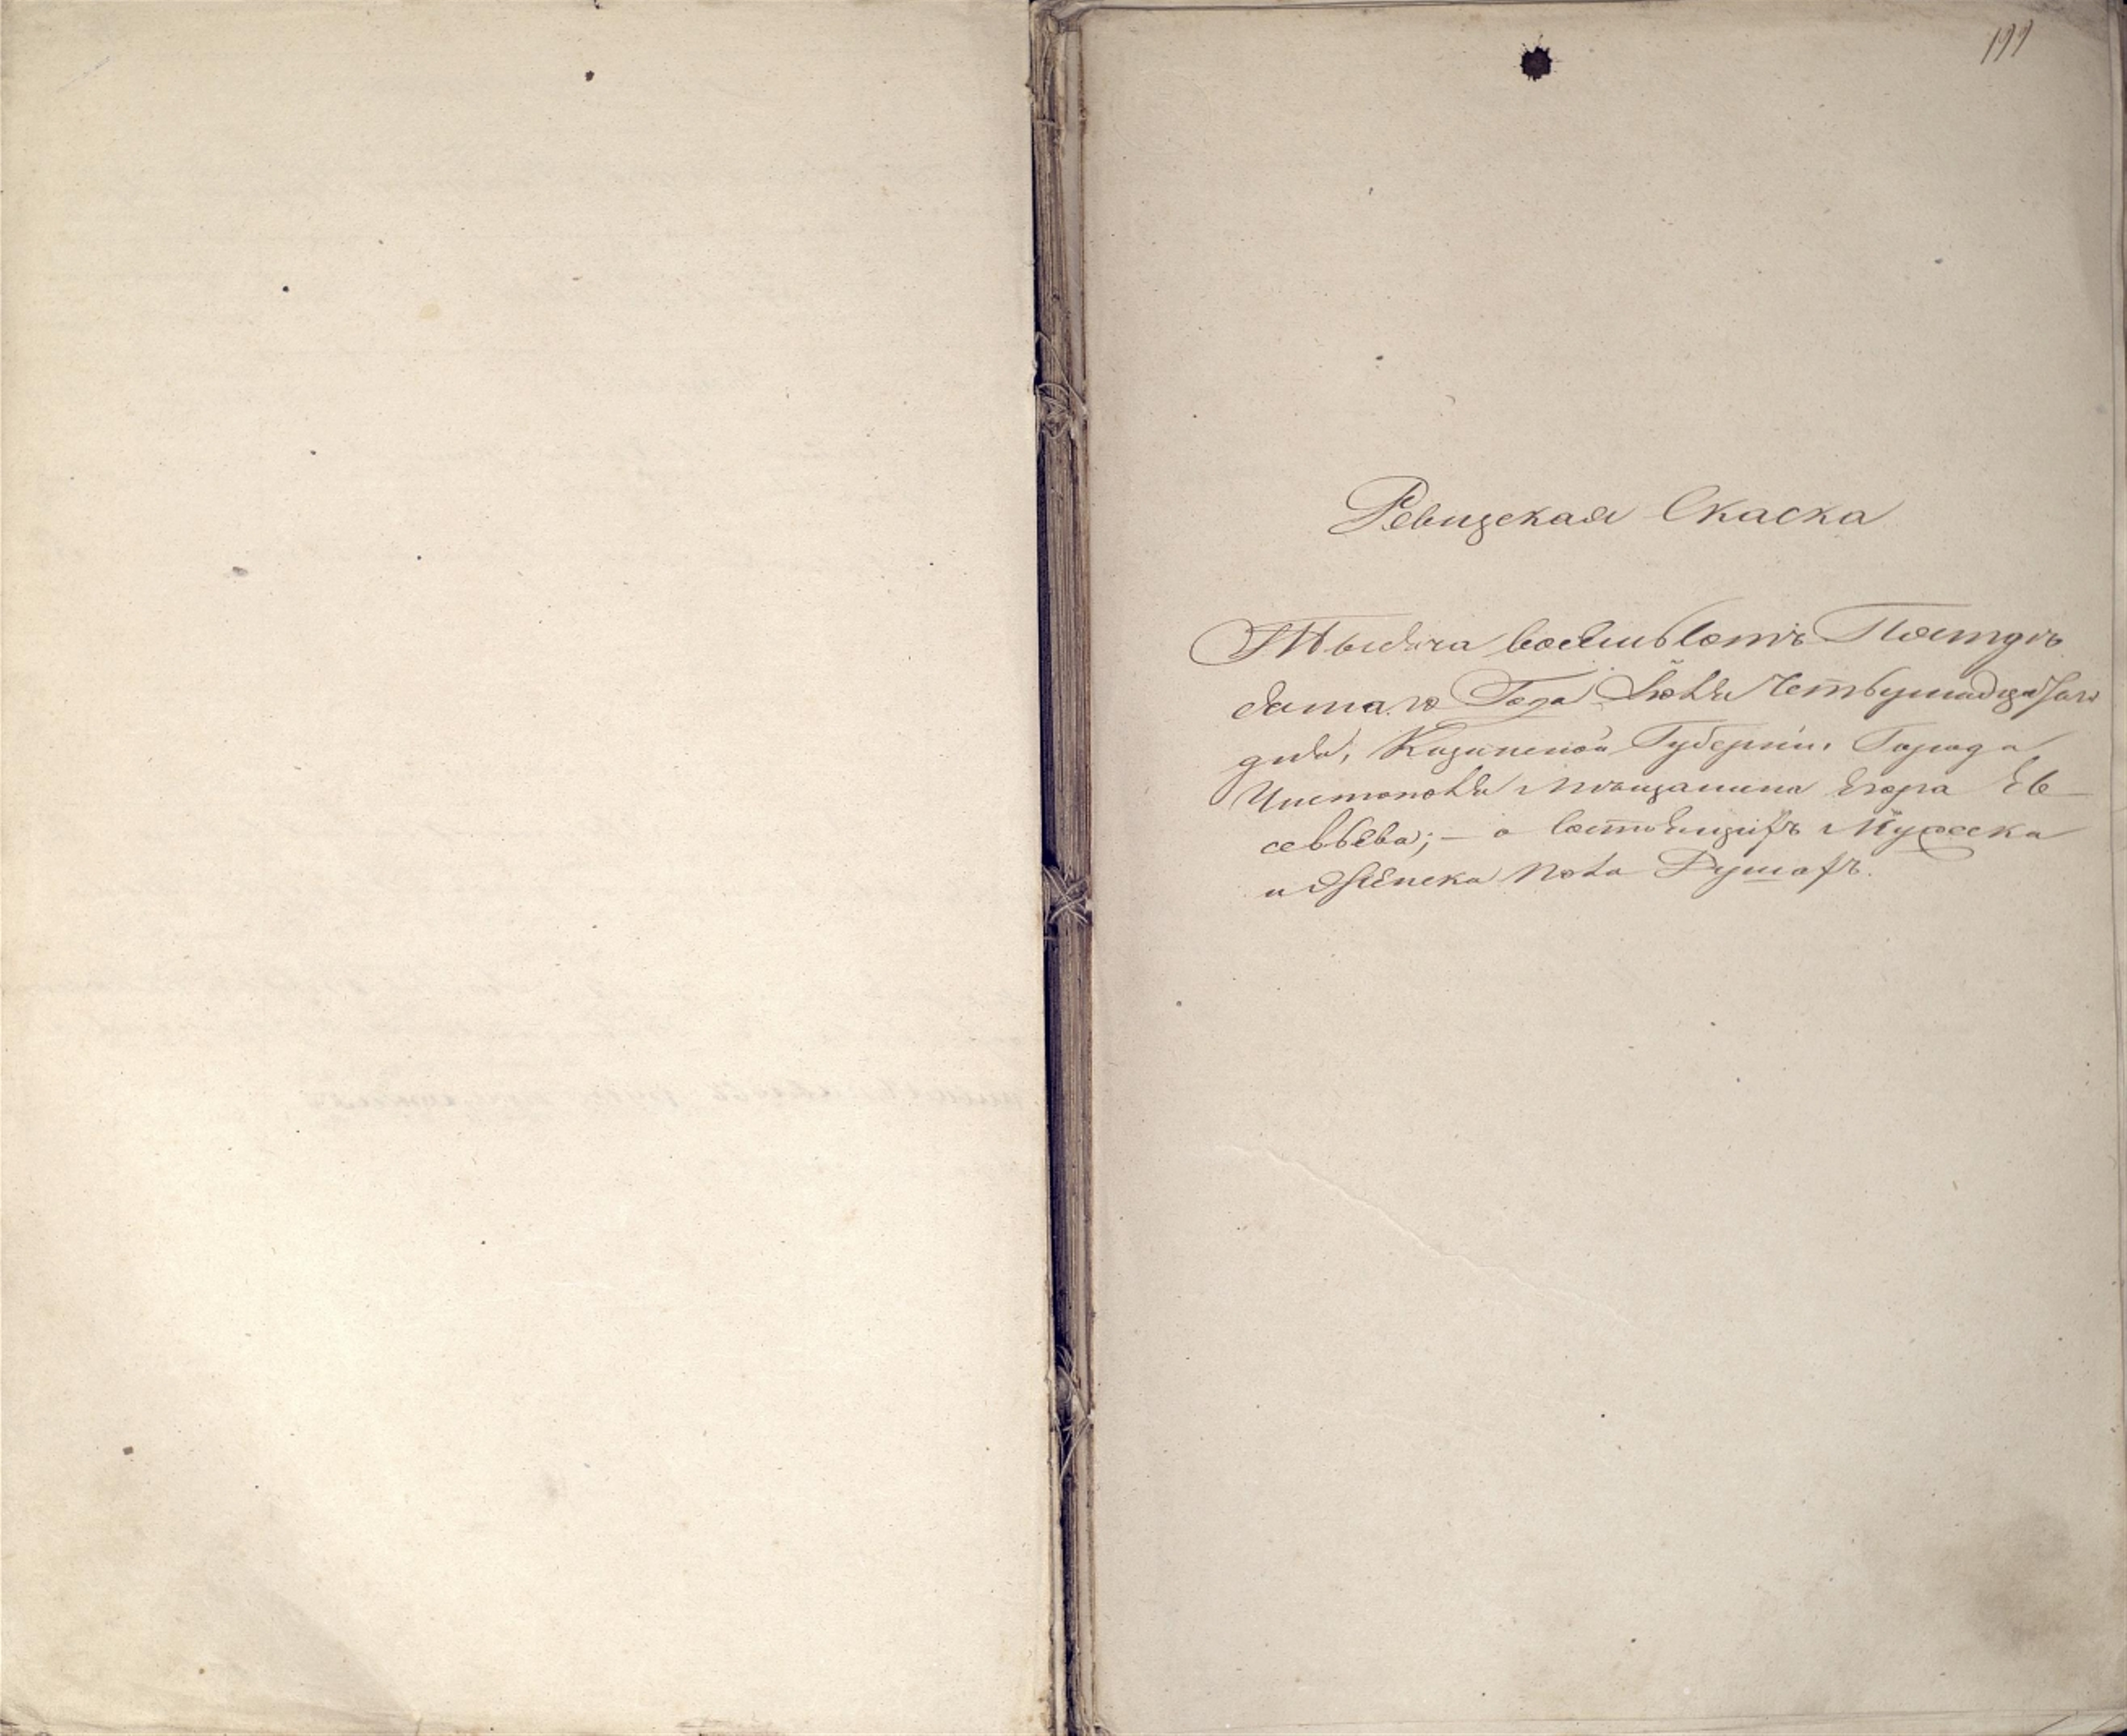 199
Ревизская Скаска
Тысяча восемьсотъ Пятьде
сятаго Года Іюня Четвертаго на десять
дня, Казанской Губерніи, Города
Чистополя Мѣщанина Егора Ев-
севьева; — о состоящихъ Мужеска
и Женска пола Душахъ.